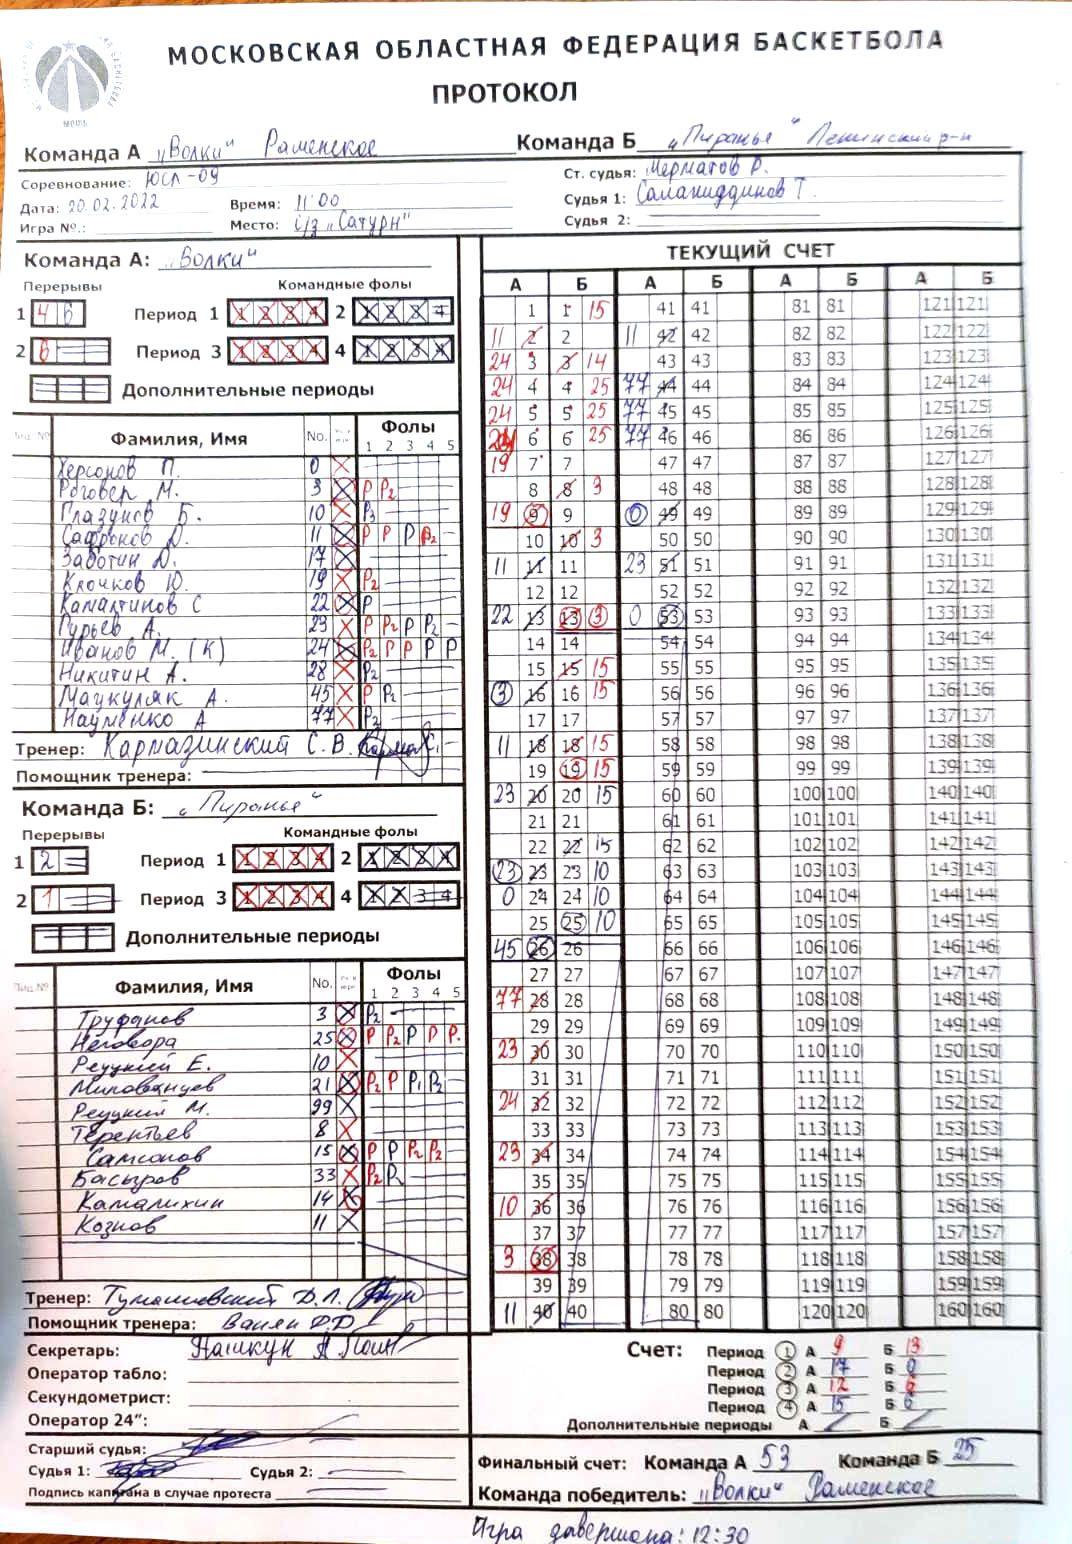 МОСКОВСКАЯ ОБЛАСТНАЯ ФЕДЕРАЦИЯ БАСКЕТБОЛА
ПРОТОКОЛ
Команда А „Волки“ Раменское Команда Б „Пиранья“ Ленинский р-н
Соревнование: ЮСЛ-09 Ст. судья: Мерматов Р.
Дата: 20.02.2022 Время: 11:00 Судья 1: Саламиддинов Т.
Игра №.: Место: с/з „Сатурн“ Судья 2:
Команда А: „Волки“
Перерывы Командные фолы
1 4 6 Период 1 1 2 3 4 2 1 2 3 4
2 6 Период 3 1 2 3 4 4 1 2 3 4
Дополнительные периоды
Фамилия, Имя No. Фолы
1 2 3 4 5
Херсонов П. 0
Роговер М. 3 P P2
Плазунов Б. 10 P3
Сафронов Д. 11 P P P P2
Заботин Д. 17
Клочков Ю. 19 P2
Камалтинов С 22 P
Гурьев А. 23 P P2 P P2
Иванов М. (К) 24 P2 P P P P
Никитин А. 28 P2
Мацкуляк А. 45 P P2
Науменко А 77 P2
Тренер: Кармазинский С.В.
Помощник тренера:
Команда Б: „Пиранья“
Перерывы Командные фолы
1 2 Период 1 1 2 3 4 2 1 2 3 4
2 1 Период 3 1 2 3 4 4 1 2 3 4
Дополнительные периоды
Фамилия, Имя No. Фолы
1 2 3 4 5
Труфанов 3 P2
Неговора 25 P P2 P P P
Рецкий Е. 10
Милованцев 21 P2 P P1 P2
Рецкий М. 99
Терентьев 8
Самсонов 15 P P P2 P2
Басыров 33 P2 P
Камалихин 14
Козлов 11
Тренер: Тумашевский Д.Л.
Помощник тренера:
ТЕКУЩИЙ СЧЕТ
А Б А Б А Б А Б
1 1 15 41 41 81 81 121 121
11 2 2 11 42 42 82 82 122 122
24 3 3 14 43 43 83 83 123 123
24 4 4 25 77 44 44 84 84 124 124
24 5 5 25 77 45 45 85 85 125 125
24 6 6 25 77 46 46 86 86 126 126
19 7 7 47 47 87 87 127 127
8 8 3 48 48 88 88 128 128
19 9 9 0 49 49 89 89 129 129
10 10 3 50 50 90 90 130 130
11 11 11 23 51 51 91 91 131 131
12 12 52 52 92 92 132 132
22 13 13 3 0 53 53 93 93 133 133
14 14 54 54 94 94 134 134
15 15 15 55 55 95 95 135 135
3 16 16 15 56 56 96 96 136 136
17 17 57 57 97 97 137 137
11 18 18 15 58 58 98 98 138 138
19 19 15 59 59 99 99 139 139
23 20 20 15 60 60 100 100 140 140
21 21 61 61 101 101 141 141
22 22 15 62 62 102 102 142 142
23 23 23 10 63 63 103 103 143 143
0 24 24 10 64 64 104 104 144 144
25 25 10 65 65 105 105 145 145
45 26 26 66 66 106 106 146 146
27 27 67 67 107 107 147 147
77 28 28 68 68 108 108 148 148
29 29 69 69 109 109 149 149
23 30 30 70 70 110 110 150 150
31 31 71 71 111 111 151 151
24 32 32 72 72 112 112 152 152
33 33 73 73 113 113 153 153
23 34 34 74 74 114 114 154 154
35 35 75 75 115 115 155 155
10 36 36 76 76 116 116 156 156
37 37 77 77 117 117 157 157
3 38 38 78 78 118 118 158 158
39 39 79 79 119 119 159 159
11 40 40 80 80 120 120 160 160
Секретарь:
Оператор табло:
Секундометрист:
Оператор 24“:
Старший судья:
Судья 1: Судья 2:
Подпись капитана в случае протеста
Счет: Период 1 А 9 Б 13
Период 2 А 17 Б
Период 3 А 12 Б
Период 4 А 15 Б
Дополнительные периоды А Б
Финальный счет: Команда А 53 Команда Б 25
Команда победитель: „Волки“ Раменское
Игра завершена: 12:30